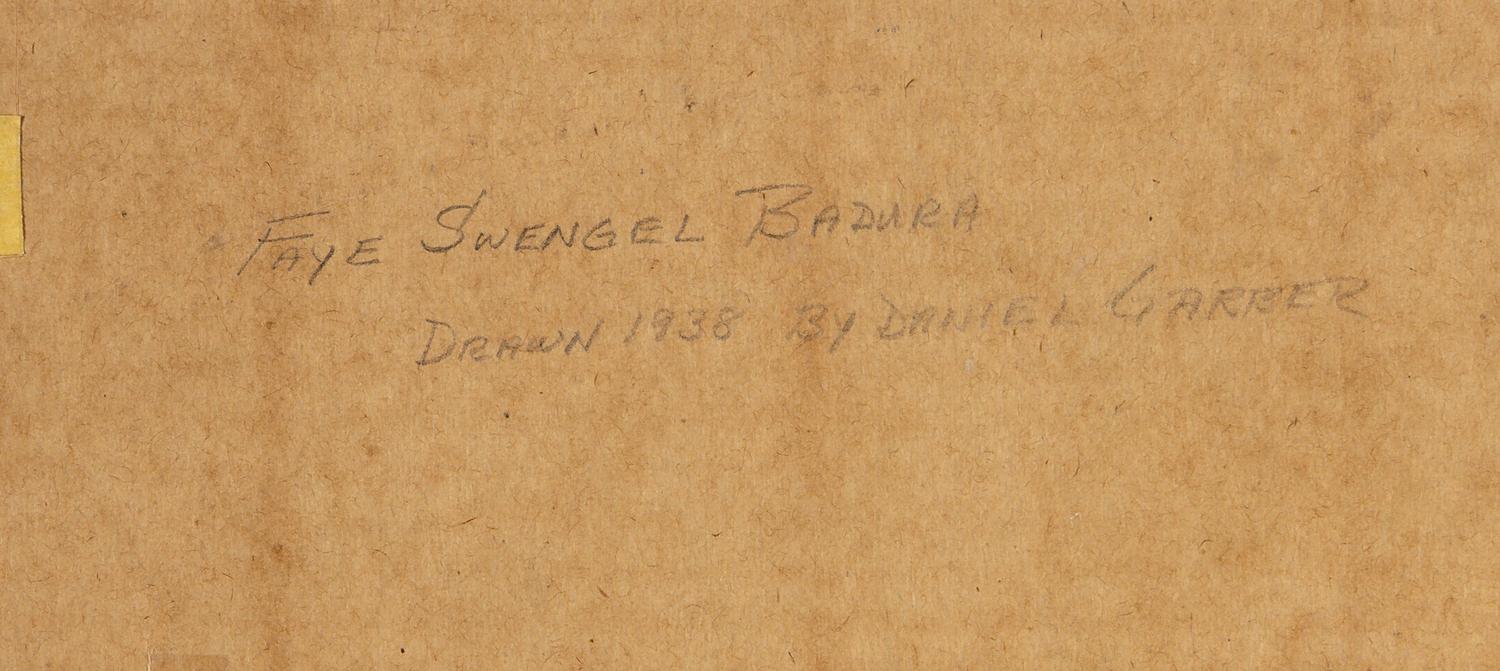 FAYE SWENGEL BADURA
DRAWN 1938 BY DANIEL GARBER